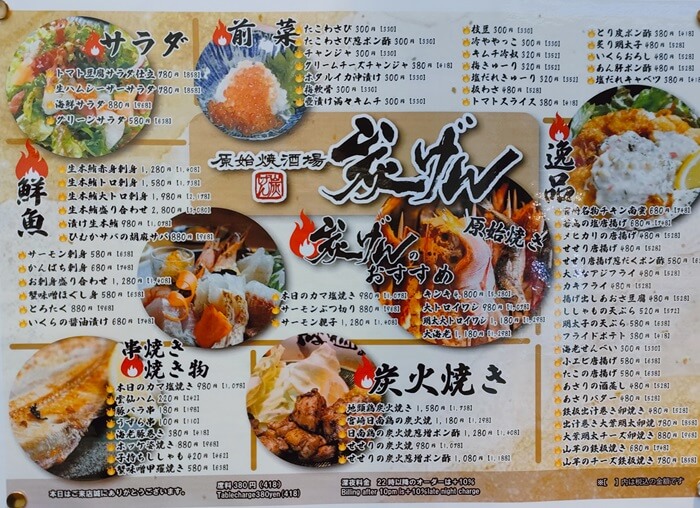 サラダ
トマト豆腐サラダ仕立 780円 [858]
生ハムシーザーサラダ 780円 [858]
海鮮サラダ 880円 [968]
グリーンサラダ 580円 [638]
前菜
たこわさび 300円 [330]
たこわさび忍ポン酢 300円 [330]
チャンジャ 300円 [330]
クリームチーズチャンジャ 380円 [418]
ホタルイカ沖漬け 300円 [330]
梅軟骨 300円 [330]
壺漬け満々キムチ 300円 [330]
枝豆 300円 [330]
冷ややっこ 300円 [330]
キムチ冷奴 320円 [352]
梅きゅうり 320円 [352]
塩だれきゅうり 320円 [352]
板わさ 480円
トマトスライス 380円 [418]
とり皮ポン酢 380円
炙り明太子 480円
いくらおろし 480円
あん肝ポン酢 480円
塩だれキャベツ 380円
原始焼酒場
炭げん
鮮魚
生本鮪赤身刺身 1,280円 [1,408]
生本鮪中トロ刺身 1,780円
生本鮪大トロ刺身 1,980円
生本鮪盛り合わせ 2,800円 [3,080]
漬け生本鮪 980円
ひむかサバの胡麻サバ 880円 [968]
サーモン刺身 580円 [638]
かんぱち刺身 680円
お刺身盛り合わせ 1,280円
蟹味噌ほぐし身 580円
とろたく 880円 [968]
いくらの醤油漬け 680円
原始焼き
炭げんのおすすめ
本日のカマ塩焼き 980円
サーモンぶつ切り 880円
サーモン親子 1,280円
キンキ 4,800円 [5,280]
大トロイワシ 980円
明太大トロイワシ 1,180円
1,180円
逸品
若鶏の塩唐揚げ 680円
メヒカリの唐揚げ 480円
せせり唐揚げ 480円
せせり唐揚げ忍だくポン酢 580円
大きなアジフライ 480円
カキフライ 480円
揚げ出しあおさ豆腐 480円
ししゃもの天ぷら 520円
明太子の天ぷら 580円
フライドポテト 380円
海老せんべい 300円
小エビ唐揚げ 580円
たこの唐揚げ 580円
あさりの酒蒸し 480円
あさりバター 480円
鉄板出汁巻き卵焼き 480円
出汁巻き大葉明太卵焼き 580円
大葉明太チーズ卵焼き 780円
山芋の鉄板焼き 680円
山芋のチーズ鉄板焼き 780円
串焼き
焼き物
本日のカマ塩焼き 980円
雲仙ハム 220円 [242]
豚バラ串 180円 [198]
うずら串 100円 [110]
海老姿焼き 380円 [418]
ホッケ姿焼き 880円 [968]
子持ちししゃも 420円 [462]
蟹味噌甲羅焼き 580円
炭火焼き
地頭鶏炭火焼き 1,580円
宮崎日南鶏の炭火焼き 1,180円
日南鶏の炭火焼忍増ポン酢 1,280円
せせりの炭火焼き 980円
せせりの炭火焼忍増ポン酢 1,080円
本日はご来店誠にありがとうございます。
席料 380円 (418)
Tablecharge380yen(418)
深夜料金 22時以降のオーダーは+10%
Billing after 10pm is+10%late night charge
※[ ]内は税込の金額です